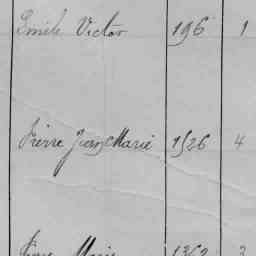 Emile Victor 196 1
Pierre Jean Marie 1526 4
Marie 1362 3